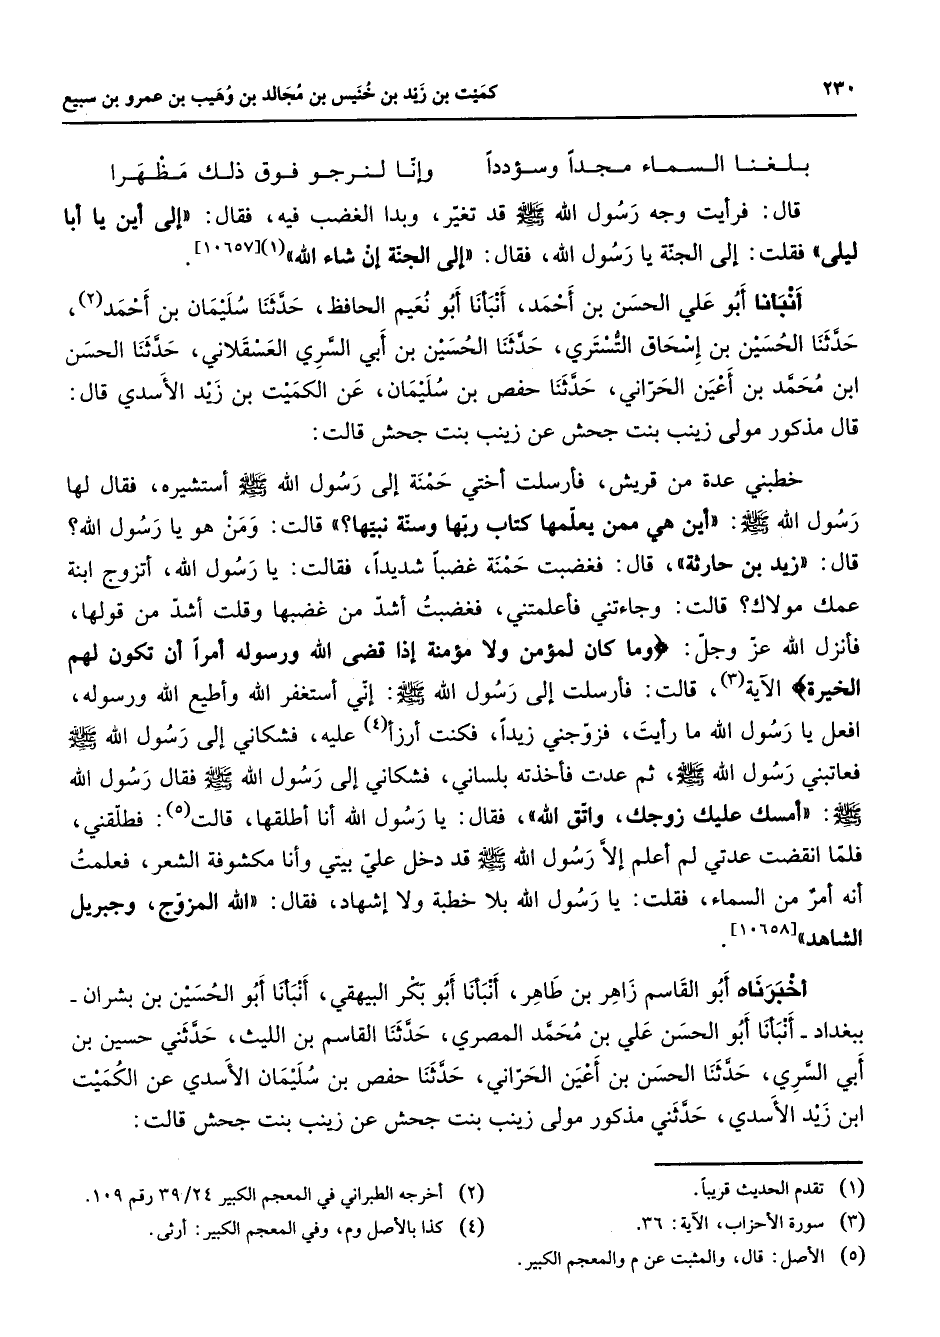 ٢٣٠ كمَيْت بن زَيْد بن خُنَيس بن مُجَالد بن وُهَيب بن عمرو بن سبيع
بـلـغـنـا الـسـمـاء مـجـداً وسـؤدداً وإنّـا لـنـرجـو فـوق ذلـك مَـظْـهَـرا
قال: فرأيت وجه رَسُول الله ﷺ قد تغيّر، وبدا الغضب فيه، فقال: «إلى أين يا أبا
ليلى» فقلت: إلى الجنّة يا رَسُول الله، فقال: «إلى الجنّة إنْ شاء الله»(١)[١٠٦٥٧].
أَنْبَانا أَبُو علي الحسَن بن أَحْمَد، أَنْبَأنَا أَبُو نُعَيم الحافظ، حَدَّثَنَا سُلَيْمَان بن أَحْمَد(٢)،
حَدَّثَنَا الحُسَيْن بن إسْحَاق التُّسْتَري، حَدَّثَنَا الحُسَيْن بن أبي السَّرِي العَسْقَلاني، حَدَّثَنَا الحسَن
ابن مُحَمَّد بن أَعْيَن الحَرّاني، حَدَّثَنَا حفص بن سُلَيْمَان، عَن الكمَيْت بن زَيْد الأسدي قال:
قال مذكور مولى زينب بنت جحش عن زينب بنت جحش قالت:
خطبني عدة من قريش، فأرسلت أختي حَمْنَة إلى رَسُول الله ﷺ أستشيره، فقال لها
رَسُول الله ﷺ: «أين هي ممن يعلّمها كتاب ربّها وسنّة نبيّها؟» قالت: وَمَنْ هو يا رَسُول الله؟
قال: «زيد بن حارثة»، قال: فغضبت حَمْنَة غضباً شديداً، فقالت: يا رَسُول الله، أتزوج ابنة
عمك مولاك؟ قالت: وجاءتني فأعلمتني، فغضبتُ أشدّ من غضبها وقلت أشدّ من قولها،
فأنزل الله عزّ وجلّ: ﴿وما كان لمؤمن ولا مؤمنة إذا قضى الله ورسوله أمراً أن تكون لهم
الخيرة﴾ الآية(٣)، قالت: فأرسلت إلى رَسُول الله ﷺ: إنّي أستغفر الله وأطيع الله ورسوله،
افعل يا رَسُول الله ما رأيتَ، فزوّجني زيداً، فكنت أرزأ(٤) عليه، فشكاني إلى رَسُول الله ﷺ
فعاتبني رَسُول الله ﷺ، ثم عدت فأخذته بلساني، فشكاني إلى رَسُول الله ﷺ فقال رَسُول الله
ﷺ: «أمسك عليك زوجك، واتّق الله»، فقال: يا رَسُول الله أنا أطلقها، قالت(٥): فطلّقني،
فلمّا انقضت عدتي لم أعلم إلاَّ رَسُول الله ﷺ قد دخل عليّ بيتي وأنا مكشوفة الشعر، فعلمتُ
أنه أمرٌ من السماء، فقلت: يا رَسُول الله بلا خطبة ولا إشهاد، فقال: «الله المزوّج، وجبريل
الشاهد»[١٠٦٥٨].
أخْبَرَنَاه أَبُو القَاسم زَاهِر بن طَاهِر، أَنْبَأنَا أَبُو بَكْر البيهقي، أَنْبَأنَا أَبُو الحُسَيْن بن بشران ـ
ببغداد ـ أَنْبَأنَا أَبُو الحسَن عَلي بن مُحَمَّد المصري، حَدَّثَنَا القاسم بن الليث، حَدَّثَني حسين بن
أَبي السَّري، حَدَّثَنَا الحسَن بن أَعْيَن الحَرّاني، حَدَّثَنَا حفص بن سُلَيْمَان الأسدي عن الكُمَيْت
ابن زَيْد الأسدي، حَدَّثَني مذكور مولى زينب بنت جحش عن زينب بنت جحش قالت:
(١) تقدم الحديث قريباً. (٢) أخرجه الطبراني في المعجم الكبير ٣٩/٢٤ رقم ١٠٩.
(٣) سورة الأحزاب، الآية: ٣٦. (٤) كذا بالأصل وم، وفي المعجم الكبير: أرثى.
(٥) الأصل: قال، والمثبت عن م والمعجم الكبير.